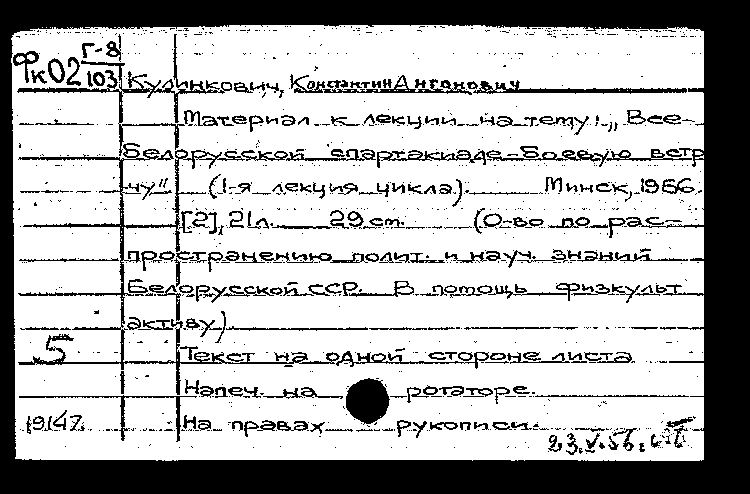 Фк02 Г-8
103
Кулинкович, Константин Антонович
Материал к лекции на тему: „Все-
белорусской спартакиаде-боевую встр
чу" (1-я лекция цикла). Минск, 1956.
[2], 21л. 29 ст. (О-во по рас-
пространению полит. и науч. знаний
Белорусской ССР. В помощь физкульт
активу).
5 Текст на одной стороне листа
Напеч. на ротаторе.
19147. На правах рукописи.
23.V.56.